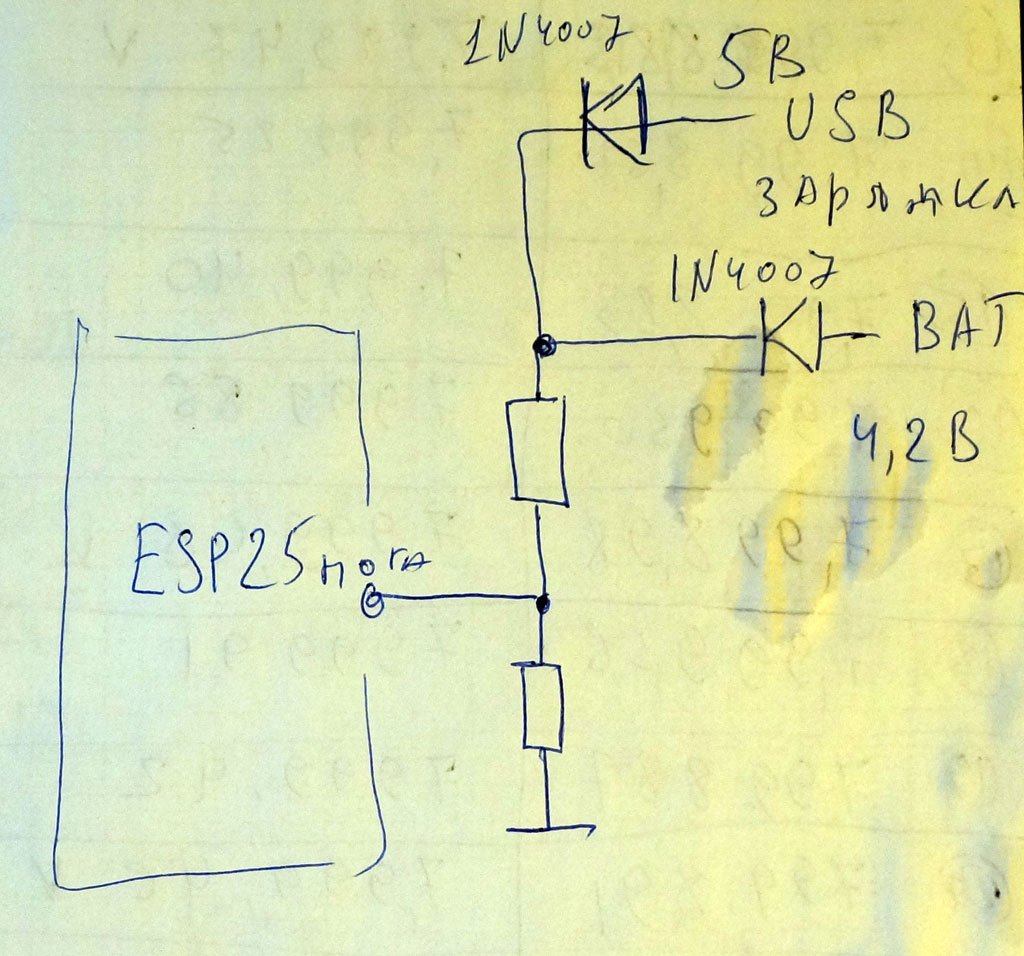 1N4007
5В
USB
зарядка
1N4007
BAT
4,2В
ESP25нога